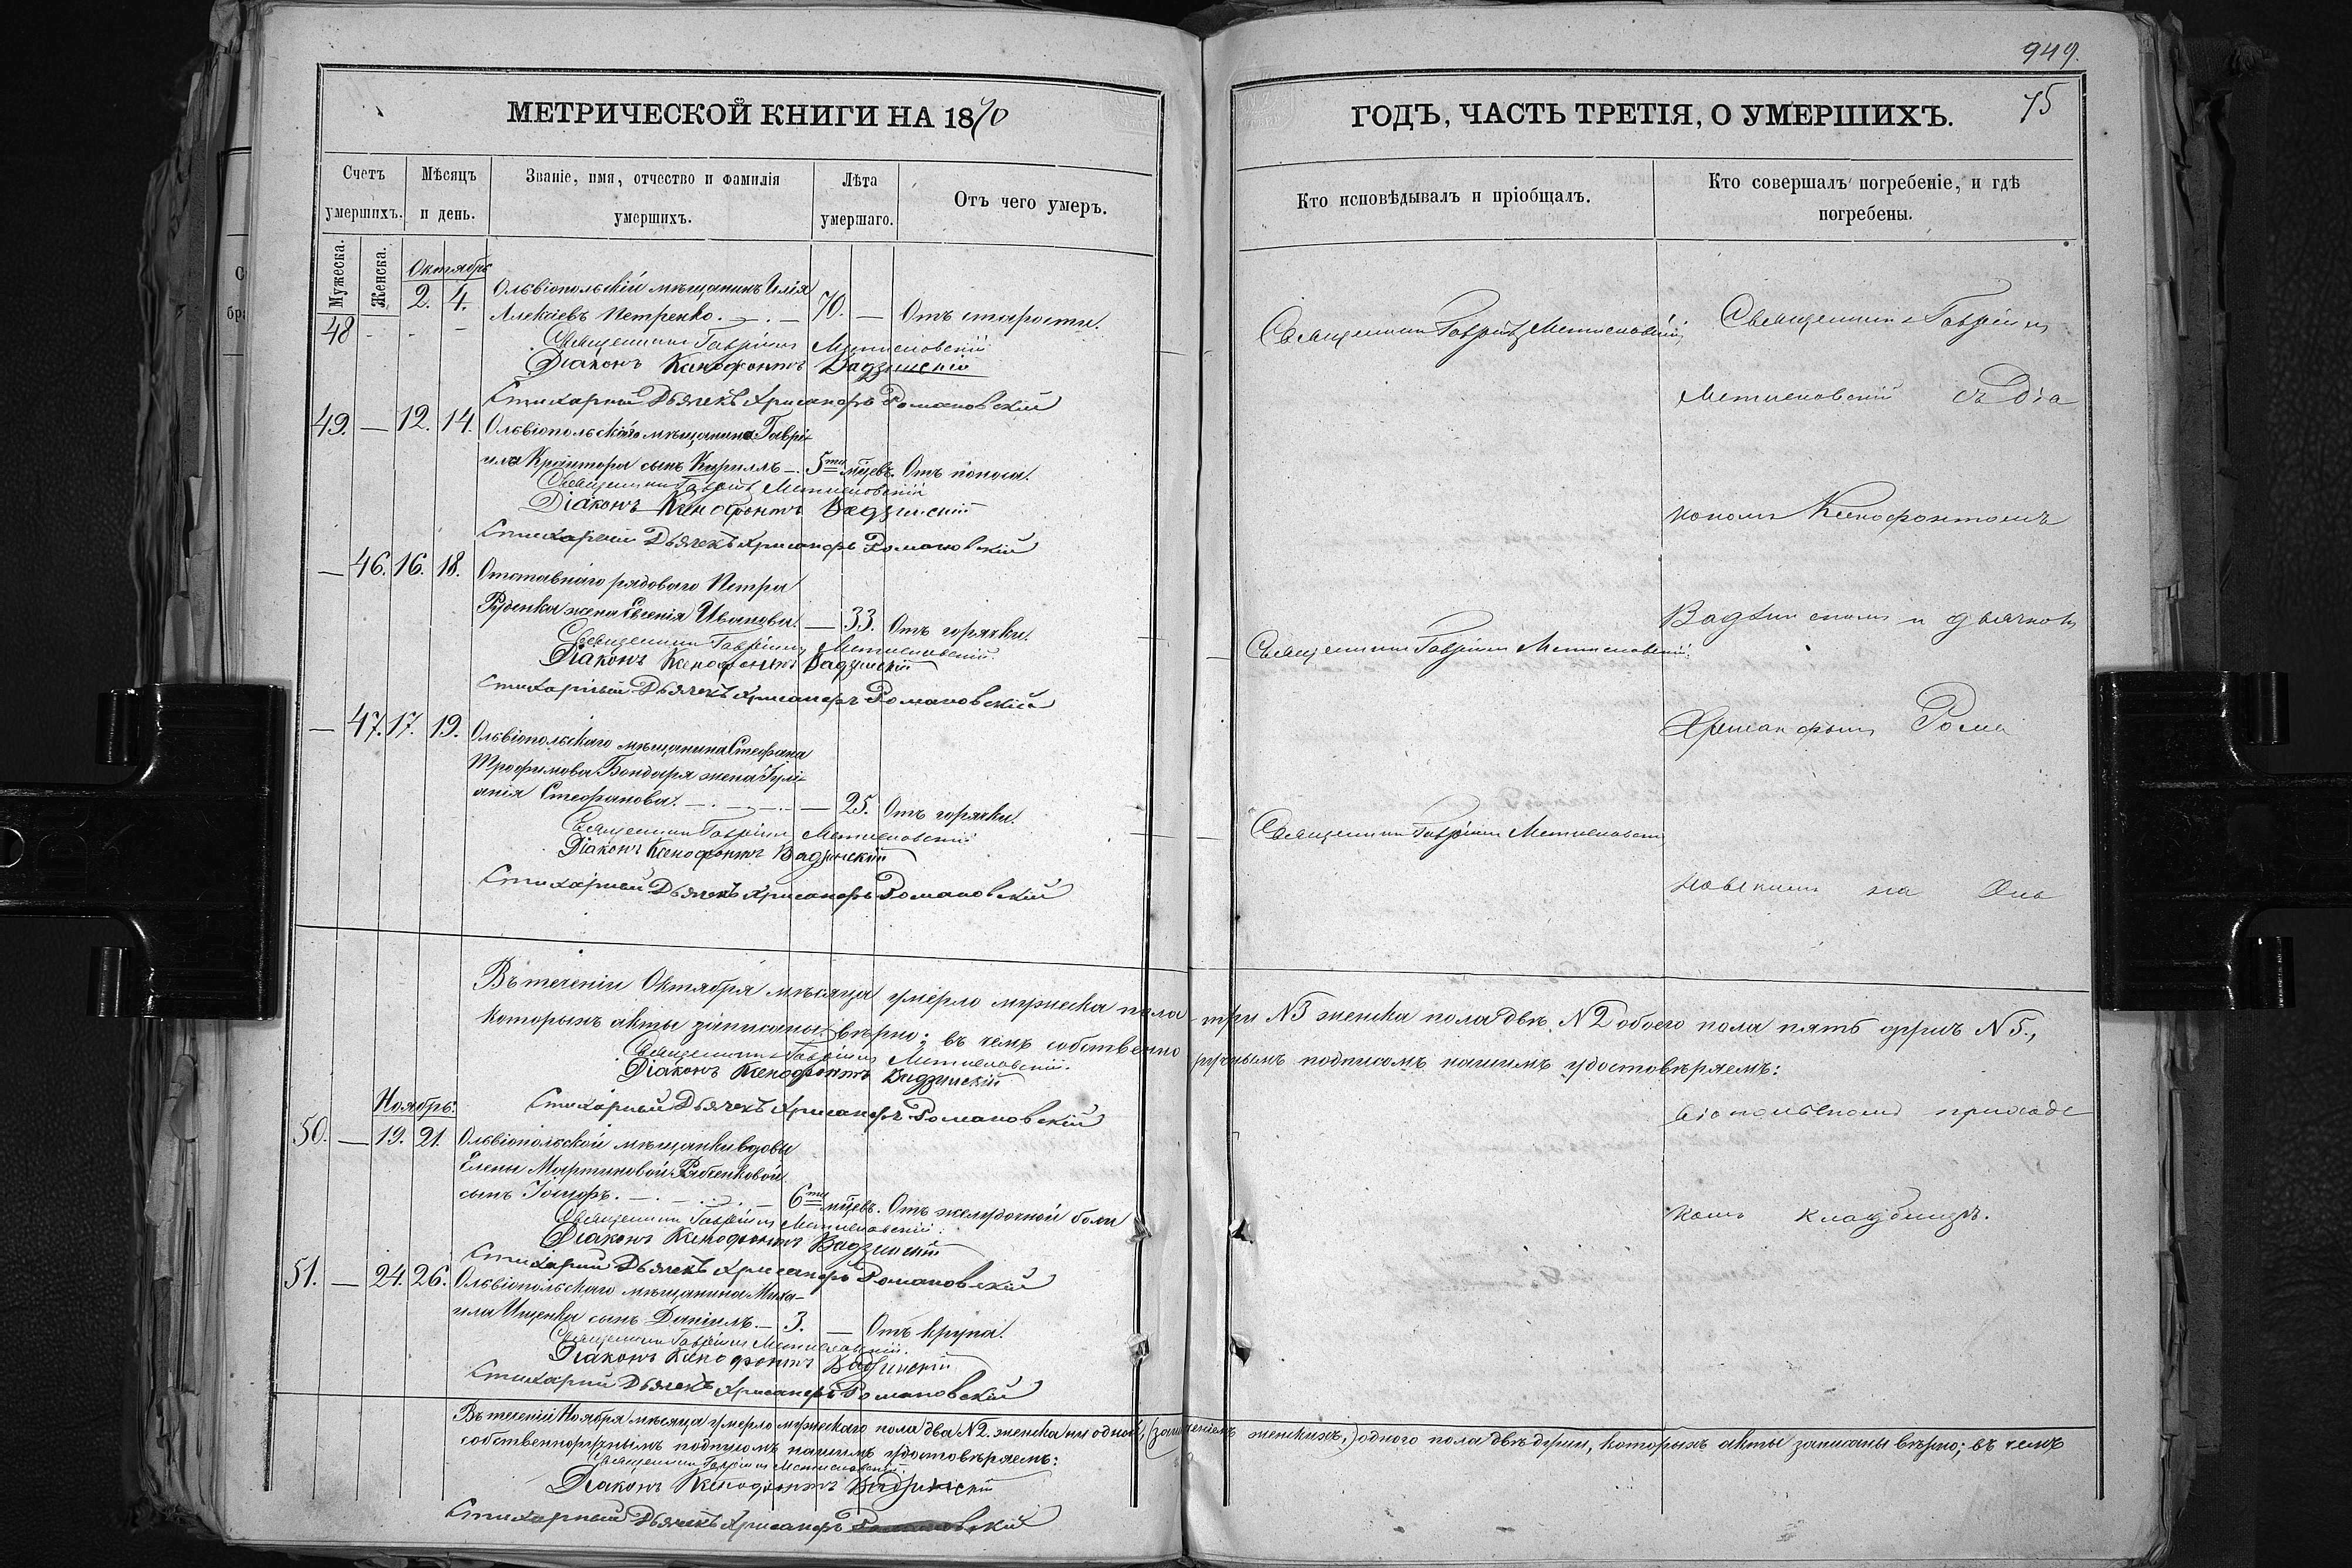 949.
МЕТРИЧЕСКОЙ КНИГИ НА 1870
ГОДЪ, ЧАСТЬ ТРЕТІЯ, О УМЕРШИХЪ.
75
Счетъ умершихъ.
Мѣсяцъ и день.
Званіе, имя, отчество и фамилія умершихъ.
Лѣта умершаго.
Отъ чего умеръ.
Кто исповѣдывалъ и пріобщалъ.
Кто совершалъ погребеніе, и гдѣ погребены.
Мужеска.
Женска.
Октябрь
48 - 2. 4. Ольвіопольскій мѣщанинъ Илія
Алексіевъ Петренко. 70. — Отъ старости.
Священникъ Гавріилъ Мстиславскій
Діаконъ Ксенофонтъ Вадзинскій
Стихарный Дьячекъ Хрисанфъ Романовскій
49. — 12. 14. Ольвіопольскаго мѣщанина Гаврі-
ила Крантора сынъ Кириллъ —. 5ти мцевъ. Отъ поноса.
Священникъ Гавріилъ Мстиславскій
Діаконъ Ксенофонтъ Вадзинскій
Стихарный Дьячекъ Хрисанфъ Романовскій
— 46. 16. 18. Отставнаго рядоваго Петра
Руденка жена Евгенія Иванова. — 33. Отъ горячки.
Священникъ Гавріилъ Мстиславскій.
Діаконъ Ксенофонтъ Вадзинскій
Стихарный Дьячекъ Хрисанфъ Романовскій
— 47. 17. 19. Ольвіопольскаго мѣщанина Стефана
Трофимова Бондаря жена Іулі-
анія Стефанова. — 25. Отъ горячки.
Священникъ Гавріилъ Мстиславскій
Діаконъ Ксенофонтъ Вадзинскій
Стихарный Дьячекъ Хрисанфъ Романовскій
Священникъ Гавріилъ Мстиславскій
Священникъ Гавріилъ Мстиславскій.
Священникъ Гавріилъ Мстиславскій
Священникъ Гавріилъ
Мстиславскій съ Діа
кономъ Ксенофонтомъ
Вадзинскимъ и дьячкомъ
Хрисанфомъ Рома
новскимъ на Оль
віопольскомъ приходс
комъ кладбищѣ.
Въ теченіи Октября мѣсяца умерло мужеска пола три №3 женска пола двѣ №2 обоего пола пять душъ №5.,
которыхъ акты записаны вѣрно; въ чемъ собственно ручнымъ подписомъ нашимъ удостовѣряемъ:
Священникъ Гавріилъ Мстиславскій.
Діаконъ Ксенофонтъ Вадзинскій
Стихарный Дьячекъ Хрисанфъ Романовскій
Ноябрь:
50. — 19. 21. Ольвіопольской мѣщанки вдовы
Елены Мартиновой Рябенковой
сынъ Іосифъ. 6ти мцевъ. Отъ желудочной боли
Священникъ Гавріилъ Мстиславскій
Діаконъ Ксенофонтъ Вадзинскій
Стихарный Дьячекъ Хрисанфъ Романовскій
51. — 24. 26. Ольвіопольскаго мѣщанина Миха-
ила Ищенка сынъ Даніилъ. — 3. — Отъ крупа.
Священникъ Гавріилъ Мстиславскій.
Діаконъ Ксенофонтъ Вадзинскій
Стихарный Дьячекъ Хрисанфъ Романовскій
Въ теченіи Ноября мѣсяца умерло мужескаго пола два №2. женска ни одной, женскихъ,) одного пола двѣ души, которыхъ акты записаны вѣрно; въ чемъ
собственноручнымъ подписомъ нашимъ удостовѣряемъ:
Священникъ Гавріилъ Мстиславскій
Діаконъ Ксенофонтъ Вадзинскій
Стихарный Дьячекъ Хрисанфъ Романовскій